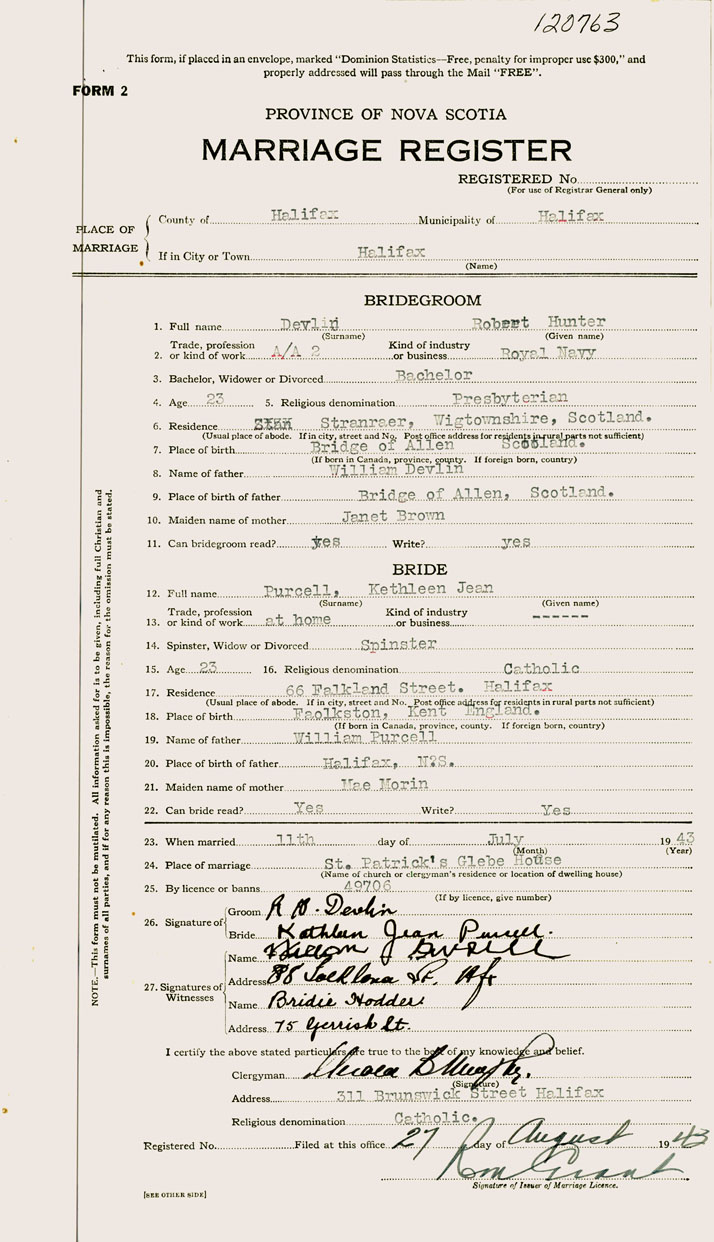 120763
This form, if placed in an envelope, marked "Dominion Statistics—Free, penalty for improper use $300," and
properly addressed will pass through the Mail "FREE".
FORM 2
PROVINCE OF NOVA SCOTIA
MARRIAGE REGISTER
REGISTERED No.
(For use of Registrar General only)
PLACE OF MARRIAGE
County of Halifax Municipality of Halifax
If in City or Town Halifax
(Name)
BRIDEGROOM
1. Full name Devlin Robert Hunter
(Surname) (Given name)
2. Trade, profession or kind of work A/A 2 Kind of industry or business Royal Navy
3. Bachelor, Widower or Divorced Bachelor
4. Age 23 5. Religious denomination Presbyterian
6. Residence Stranraer, Wigtownshire, Scotland.
(Usual place of abode. If in city, street and No. Post office address for residents in rural parts not sufficient)
7. Place of birth Bridge of Allen Scotland.
(If born in Canada, province, county. If foreign born, country)
8. Name of father William Devlin
9. Place of birth of father Bridge of Allen, Scotland.
10. Maiden name of mother Janet Brown
11. Can bridegroom read? yes Write? yes
BRIDE
12. Full name Purcell, Kethleen Jean
(Surname) (Given name)
13. Trade, profession or kind of work at home Kind of industry or business ------
14. Spinster, Widow or Divorced Spinster
15. Age 23 16. Religious denomination Catholic
17. Residence 66 Falkland Street. Halifax
(Usual place of abode. If in city, street and No. Post office address for residents in rural parts not sufficient)
18. Place of birth Faolkston, Kent England.
(If born in Canada, province, county. If foreign born, country)
19. Name of father William Purcell
20. Place of birth of father Halifax, N?S.
21. Maiden name of mother Mae Morin
22. Can bride read? Yes Write? Yes
23. When married 11th day of July 1943
(Month) (Year)
24. Place of marriage St. Patrick's Glebe House
(Name of church or clergyman's residence or location of dwelling house)
25. By licence or banns 49706
(If by licence, give number)
26. Signature of Groom R H. Devlin
Bride Kathleen Jean Purcell.
27. Signatures of Witnesses
Name J Purcell
Address St. Hfx
Name Bridie Hodder
Address 75 Gerrish St.
I certify the above stated particulars are true to the best of my knowledge and belief.
Clergyman Murphy.
(Signature)
Address 311 Brunswick Street Halifax
Religious denomination Catholic.
Registered No. Filed at this office 27 day of August 1943
Grant
Signature of Issuer of Marriage Licence.
[SEE OTHER SIDE]
NOTE.—This form must not be mutilated. All information asked for is to be given, including full Christian and
surnames of all parties, and if for any reason this is impossible, the reason for the omission must be stated.